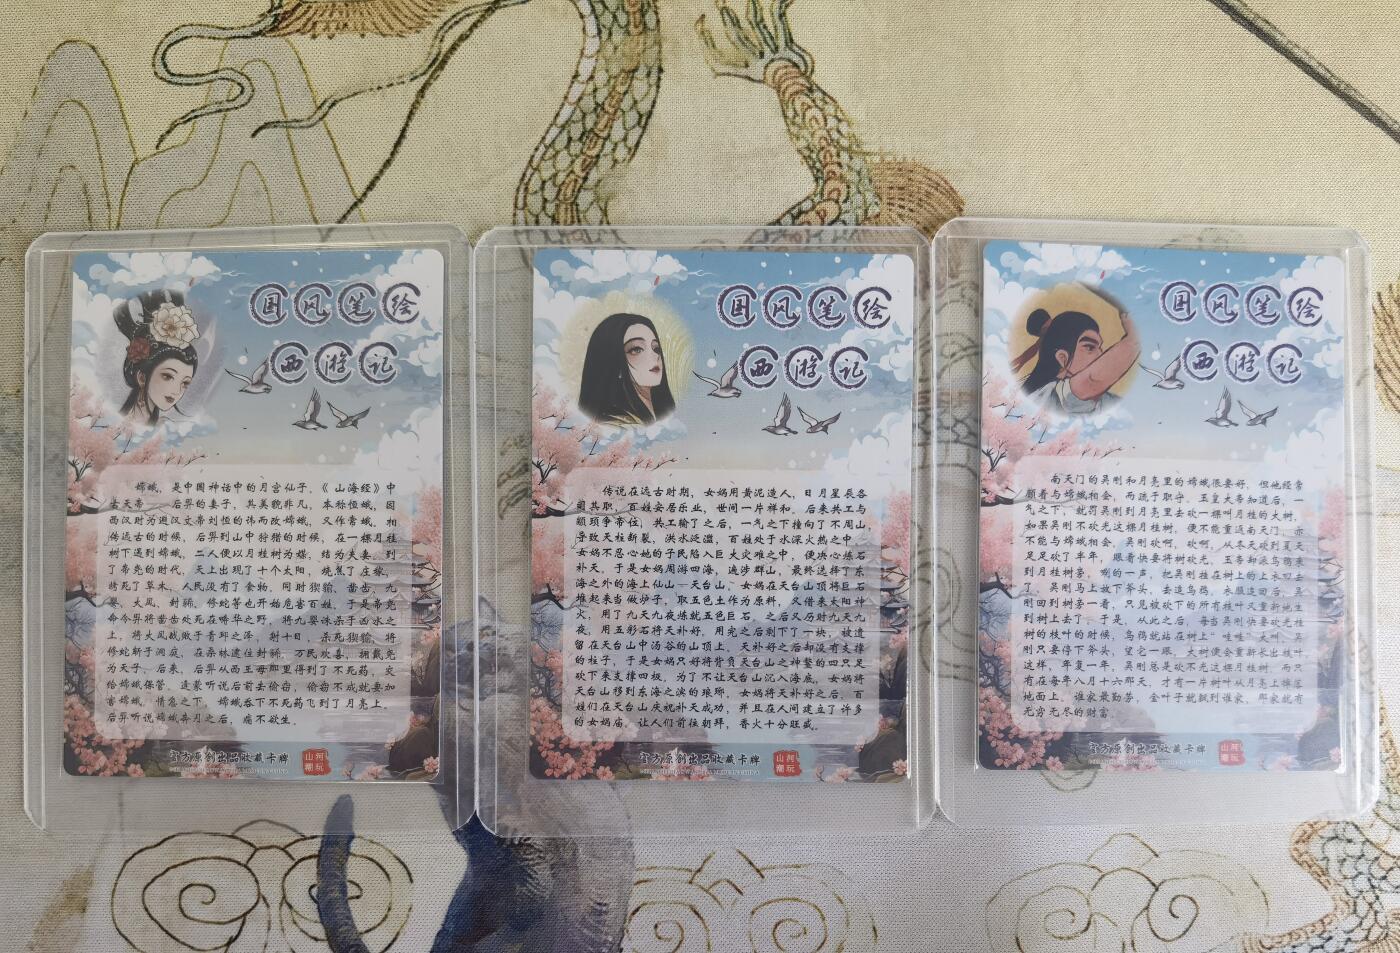 国风笔绘
西游记
嫦娥，是中国神话中的月宫仙子。《山海经》中
去天帝——后羿的妻子，其美貌非凡，本称恒娥，因
西汉时为避汉文帝刘恒的讳而改嫦娥，又作常娥，相
传远古的时候，后羿到山中狩猎的时候，在一棵月桂
树下遇到嫦娥，二人便以月桂树为媒，结为夫妻。到
了帝尧的时代，天上出现了十个太阳，烧焦了庄稼，
烤死了草木，人民没有了食物，同时猰貐、凿齿、九
婴、大风、封豨、修蛇等也开始危害百姓，于是帝尧
命令羿将凿齿处死在畴华之野，将九婴诛杀于凶水之
上，将大风战败于青邱之泽，射十日，杀死猰貐，将
修蛇斩于洞庭，在桑林逮住封豨，万民欢喜，拥戴尧
为天子。后来，后羿从西王母那里得到了不死药，交
给嫦娥保管。逢蒙听说后前去偷窃，偷窃不成就要加
害嫦娥。情急之下，嫦娥吞下不死药飞到了月亮上。
后羿听说嫦娥奔月之后，痛不欲生。
官方原创出品收藏卡牌
山河
潮玩
国风笔绘
西游记
传说在远古时期，女娲用黄泥造人，日月星辰各
司其职，百姓安居乐业，世间一片祥和。后来共工与
颛顼争帝位，共工输了之后，一气之下撞向了不周山，
导致天柱断裂，洪水泛滥，百姓处于水深火热之中。
女娲不忍心她的子民陷入巨大灾难之中，便决心炼石
补天，于是女娲周游四海，遍涉群山，最终选择了东
海之外的海上仙山—天台山。女娲在天台山顶将巨石
堆起来当做炉子，取五色土作为原料，又借来太阳神
火，用了九天九夜炼就五色巨石。之后又历时九天九
夜，用五彩石将天补好，用完之后剩下了一块，被遗
留在天台山中汤谷的山顶上。天补好之后却没有支撑
的柱子，于是女娲只好将背负天台山之神鳌的四只足
砍下来支撑四极。为了不让天台山沉入海底，女娲将
天台山移到东海之滨的琅琊。女娲将天补好之后，百
姓们在天台山庆祝补天成功，并且在人间建立了许多
的女娲庙，让人们前往朝拜，香火十分旺盛。
官方原创出品收藏卡牌
山河
潮玩
国风笔绘
西游记
南天门的吴刚和月亮里的嫦娥很要好，但他经常
顾着与嫦娥相会，而疏于职守。玉皇大帝知道后，一
气之下，就罚吴刚到月亮里去砍一棵叫月桂的大树，
如果吴刚不砍光这棵月桂树，便不能重返南天门，亦
不能与嫦娥相会。吴刚砍啊，砍啊，从冬天砍到夏天，
足足砍了半年，眼看快要将树砍光，玉帝却派乌鸦来
到月桂树旁，唰的一声，把吴刚挂在树上的上衣叼去
了。吴刚马上放下斧头，去追乌鸦。衣服追回后，吴
刚回到树旁一看，只见被砍下的所有枝叶又重新地生
到树上去了。于是，从此之后，每当吴刚快要砍光桂
树的枝叶的时候，乌鸦就站在树上“哇哇”大叫，吴
刚只要停下斧头，望它一眼，大树便会重新长出枝叶。
这样，年复一年，吴刚总是砍不光这棵月桂树。而只
有在每年八月十六那天，才有一片树叶从月亮上掉落
地面上，谁家最勤劳，金叶子就飘到谁家，那家就有
无穷无尽的财富。
官方原创出品收藏卡牌
山河
潮玩